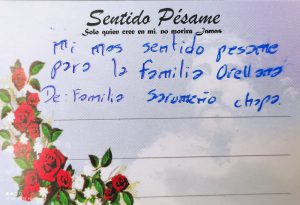 Sentido Pésame
Solo quien cree en mi, no morira Jamas
Mi mas sentido pesame
para la familia Orellana
De: Familia Sarmeño chapa.